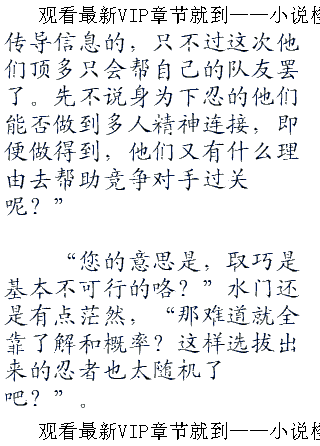 观看最新VIP章节就到——小说检
传导信息的，只不过这次他
们顶多只会帮自己的队友罢
了。先不说身为下忍的他们
能否做到多人精神连接，即
便做得到，他们又有什么理
由去帮助竞争对手过关
呢？”
“您的意思是，取巧是
基本不可行的咯？”水门还
是有点茫然，“那难道就全
靠了解和概率？这样选拔出
来的忍者也太随机了
吧？”。
观看最新VIP章节就到——小说检